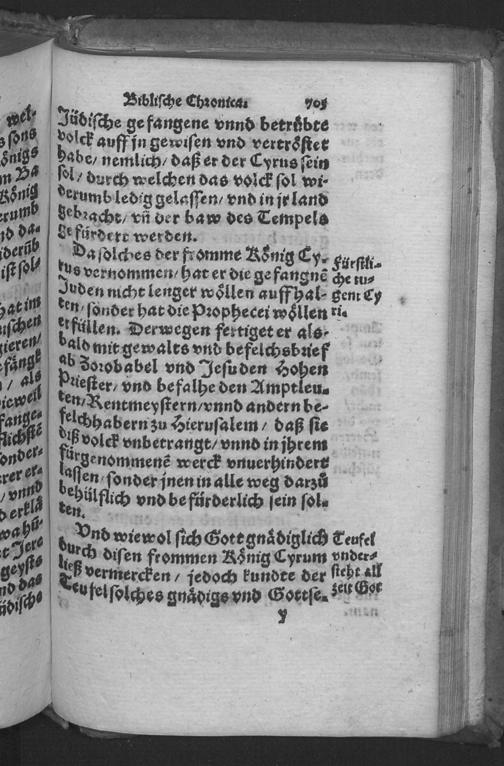 Biblische Chronica. 705
Jüdische gefangene vnnd betrübte
volck auff jn gewisen vnd vertröstet
habe/ nemlich/ daß er der Cyrus sein
sol/ durch welchen das volck sol wi-
derumb ledig gelassen/ vnd in jr land
gebracht/ vñ der baw des Tempels
gefürdert werden.
Da solches der fromme König Cy-
rus vernommen/ hat er die gefangnẽ
Juden nicht lenger wöllen auff hal-
ten/ sonder hat die Prophecei wöllen
erfüllen. Derwegen fertiget er als-
bald mit gewalts vnd befelchsbrief
ab Zorobabel vnd Jesu den Hohen
Priester/ vnd befalhe den Amptleu-
ten/ Rentmeystern/ vnnd andern be-
felchhabern zu Hierusalem/ daß sie
diß volck vnbetrangt/ vnnd in jhrem
fürgenommenẽ werck vnuerhindert
lassen/ sonder jnen in alle weg darzů
behülflich vnd befürderlich sein sol-
ten.
Vnd wiewol sich Gott gnädiglich
durch disen frommen König Cyrum
ließ vermercken/ jedoch kundte der
Teufel solches gnädigs vnd Gottse-
y
Fürstli-
che tu-
gent Cy
ri.
Teufel
vnder-
steht all
zeit Got
wel-
s sons
önigs
m Ba
König
erumb
nd da-
iderüb
ist sol-
hat im
uischen
gieren/
fängk
/ als
ieweil
fange-
flichstẽ
onder-
rer er-
/ vnnd
d erklä
wa hü-
t Jere
geysts
nd das
üdische